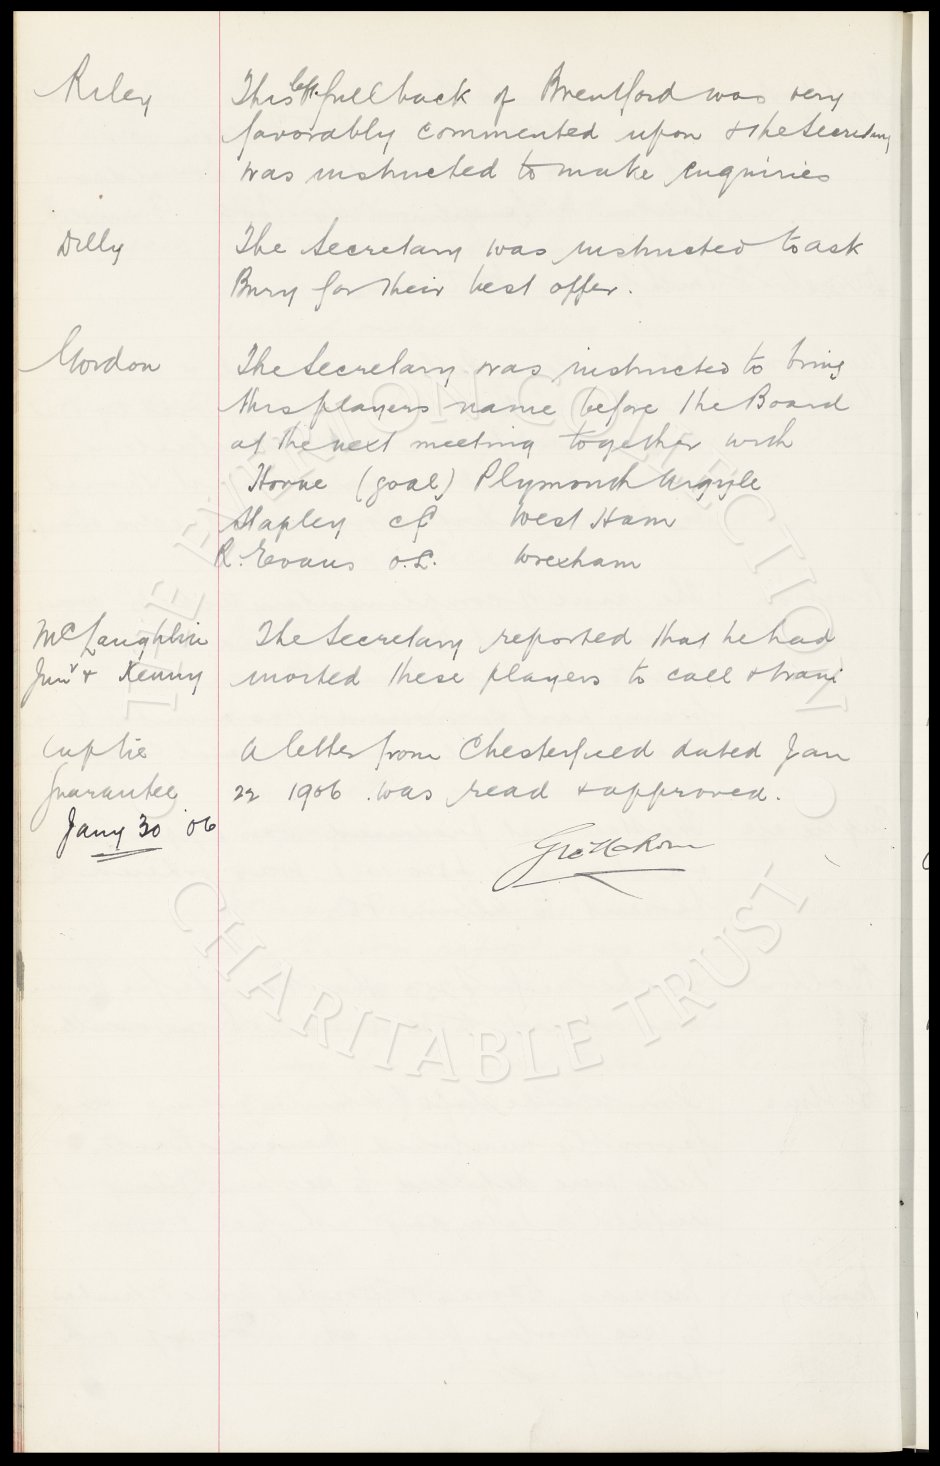 Riley This left full back of Brentford was very
favorably commented upon & the Secretary
was instructed to make enquiries
Dilly The Secretary was instructed to ask
Bury for their best offer.
Gordon The Secretary was instructed to bring
this players name before the Board
at the next meeting together with
Horne (goal) Plymouth Argyle
Stapley cf West Ham
R. Evans o.L. Wrexham
McLaughlin The Secretary reported that he had
Junr & Kenny invited these players to call & train
Cup tie A letter from Chesterfield dated Jan
Guarantee 22 1906 was read & approved.
Jany 30 06
THE EVERTON COLLECTION
CHARITABLE TRUST